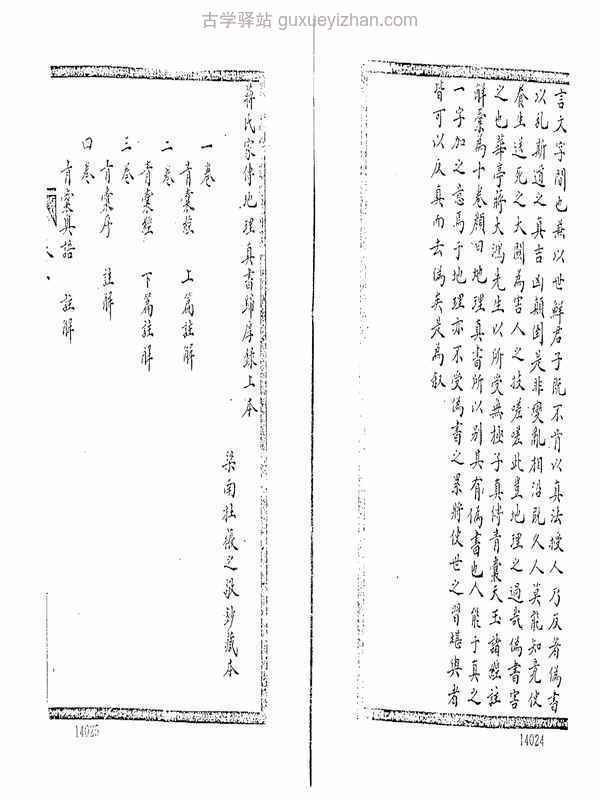 古学驿站 guxueyizhan.com
言文字間也兼以世鮮君子既不肯以真法授人乃反着偽書
以乱斯道之真吉凶顛倒是非變亂相沿既久人莫能知竟使
養生送死之大関為害人之技嗟嗟此豈地理之過哉偽書害
之也華亭蔣大鴻先生以所受無極子真傳青囊天玉諸經註
解彙為十卷顏曰地理真書所以别其有偽書也人能于真之
一字加之意焉于地理亦不受偽書之累将使世之習堪輿者
皆可以反真而去偽矣是為叙
14024
蔣氏家傳地理真書歸厚錄上本
梁南杜 之 抄藏本
一卷
青囊經 上篇註解
二卷
青囊經 下篇註解
三卷
青囊序 註解
四卷
青囊奥語 註解
14025